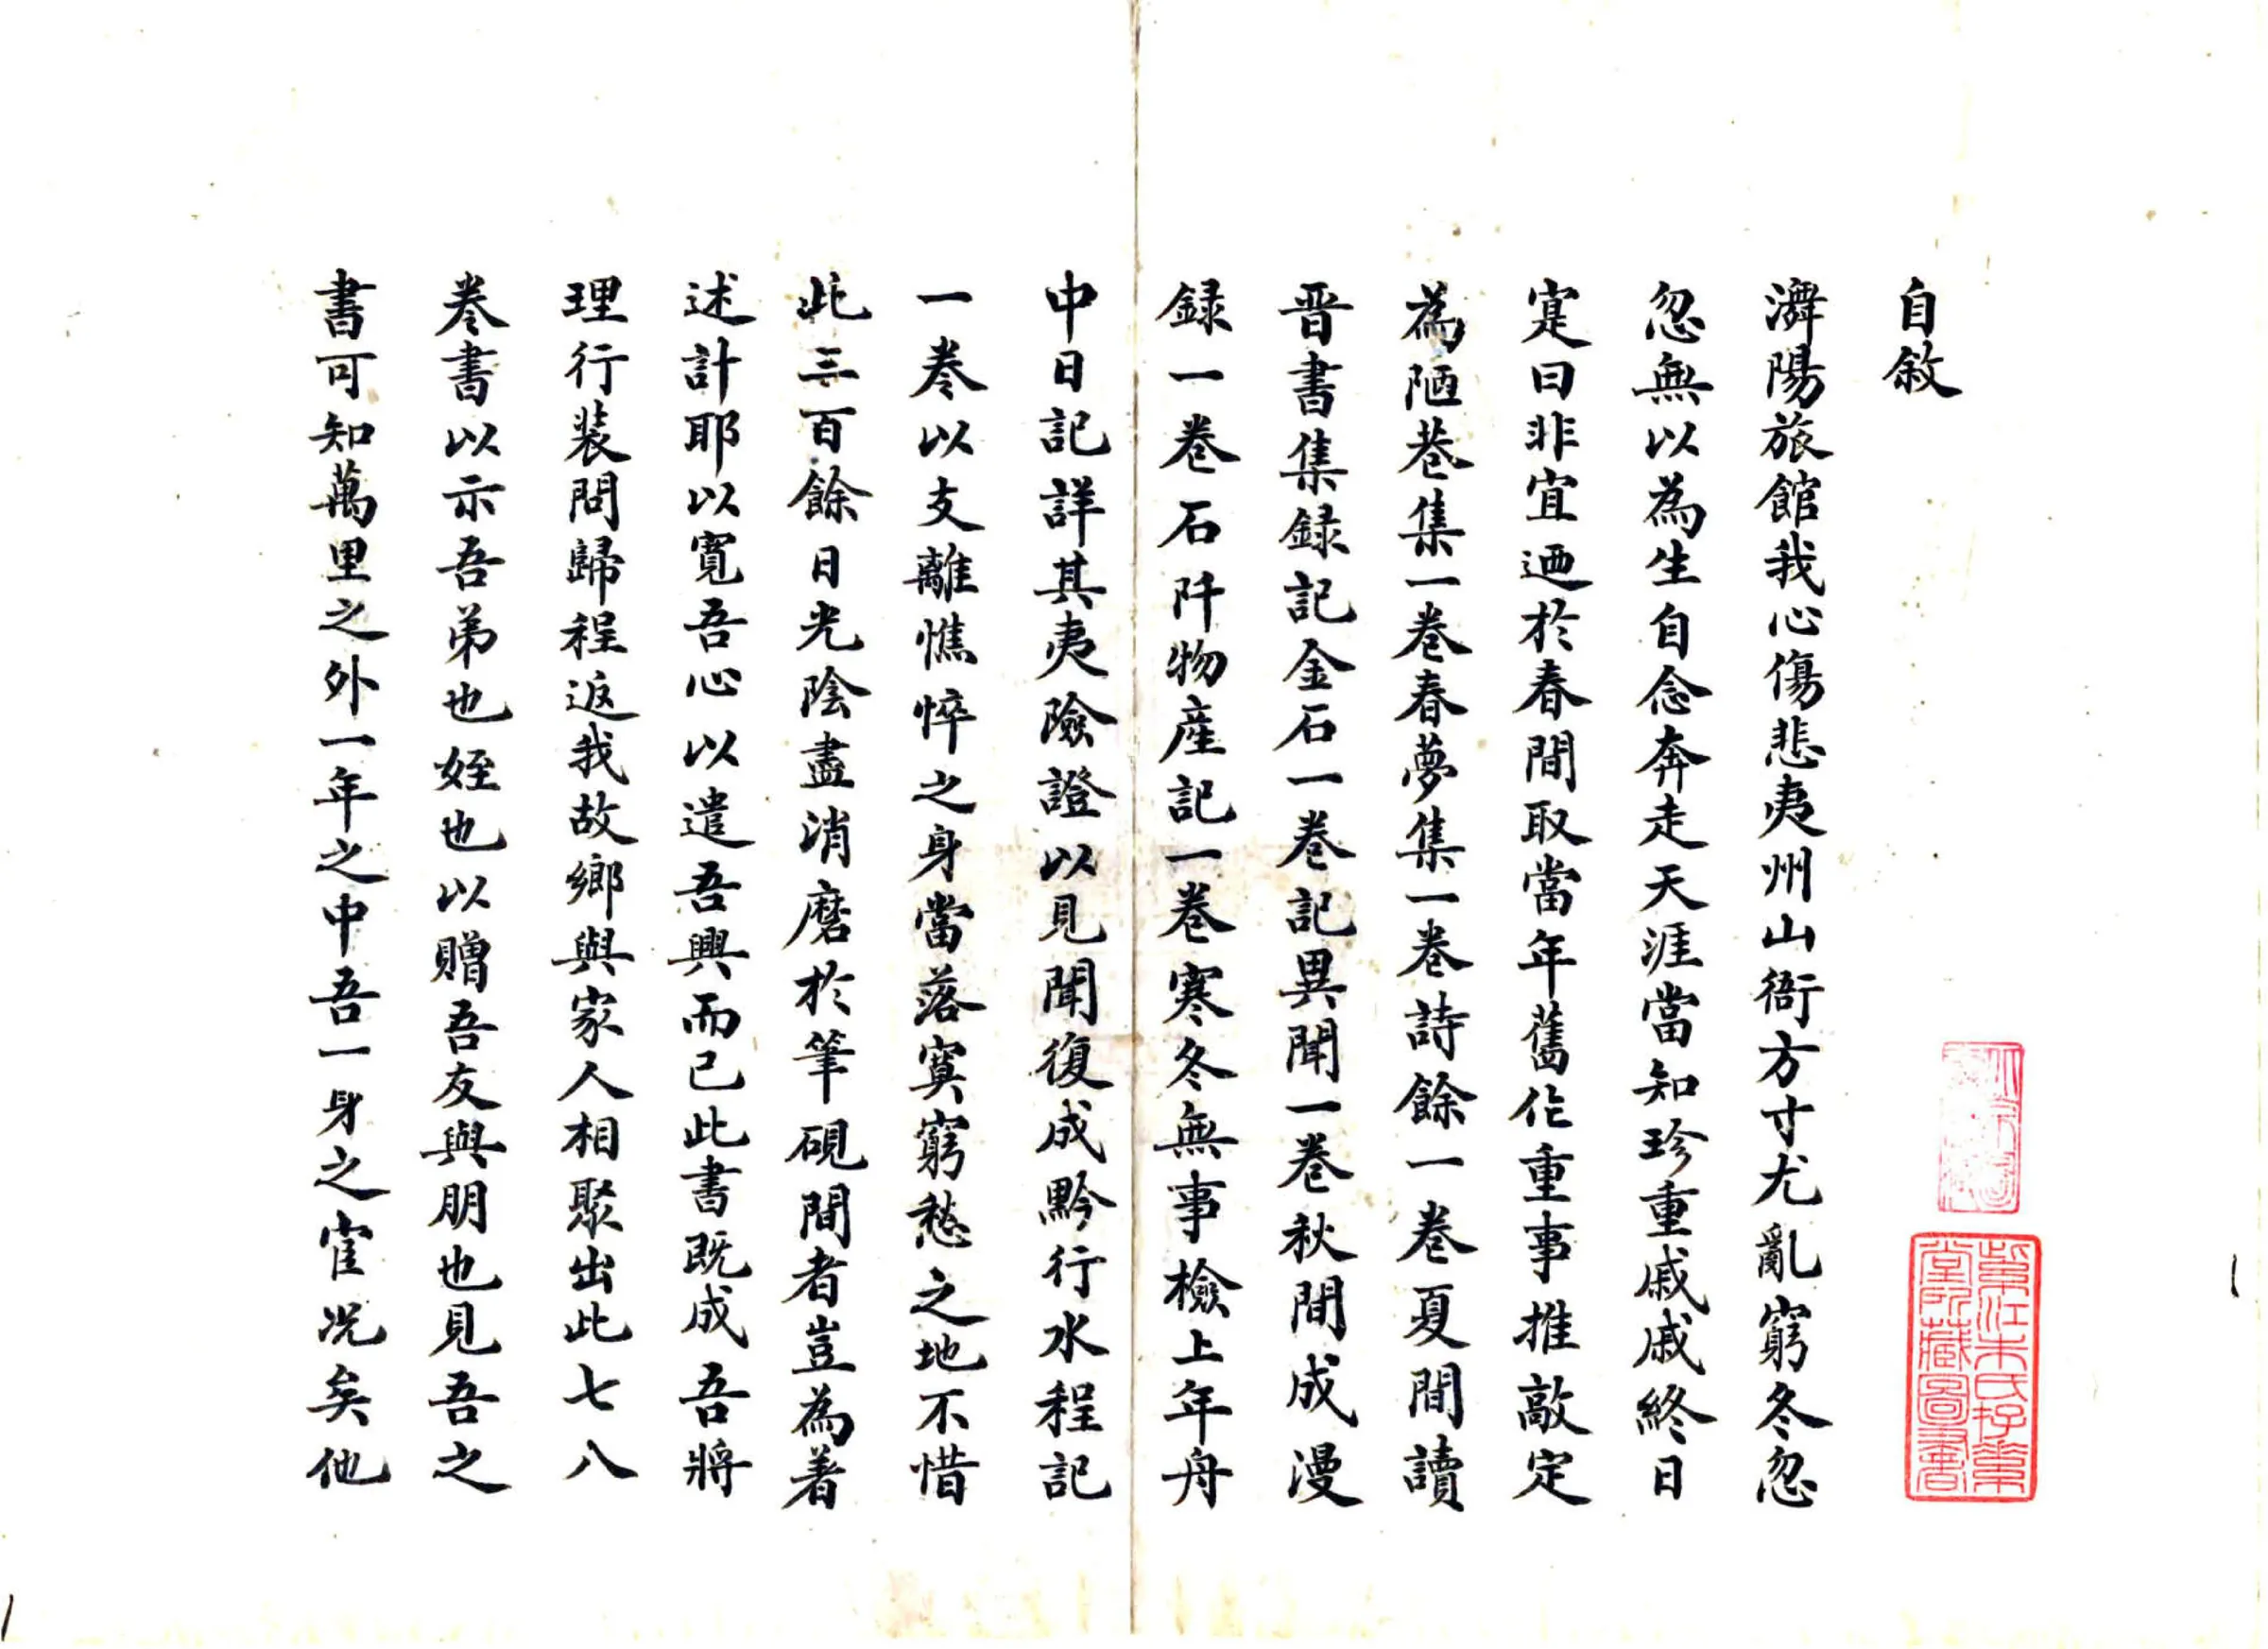 自敘
瀰陽旅館我心傷悲夷州山衙方寸尤亂窮冬忽
忽無以為生自念奔走天涯當知珍重戚戚終日
寔曰非宜迺於春間取當年舊作重事推敲定
為陋巷集一卷春夢集一卷詩餘一卷夏間讀
晋書集録記金石一卷記異聞一卷秋間成漫
録一卷石阡物産記一卷寒冬無事檢上年舟
中日記詳其夷險證以見聞復成黔行水程記
一卷以支離憔悴之身當落寞窮愁之地不惜
此三百餘日光陰盡消磨於筆硯間者豈為著
述計耶以寬吾心以遣吾興而已此書既成吾將
理行裝問歸程返我故鄉與家人相聚出此七八
卷書以示吾弟也姪也以贈吾友與朋也見吾之
書可知萬里之外一年之中吾一身之宦况矣他